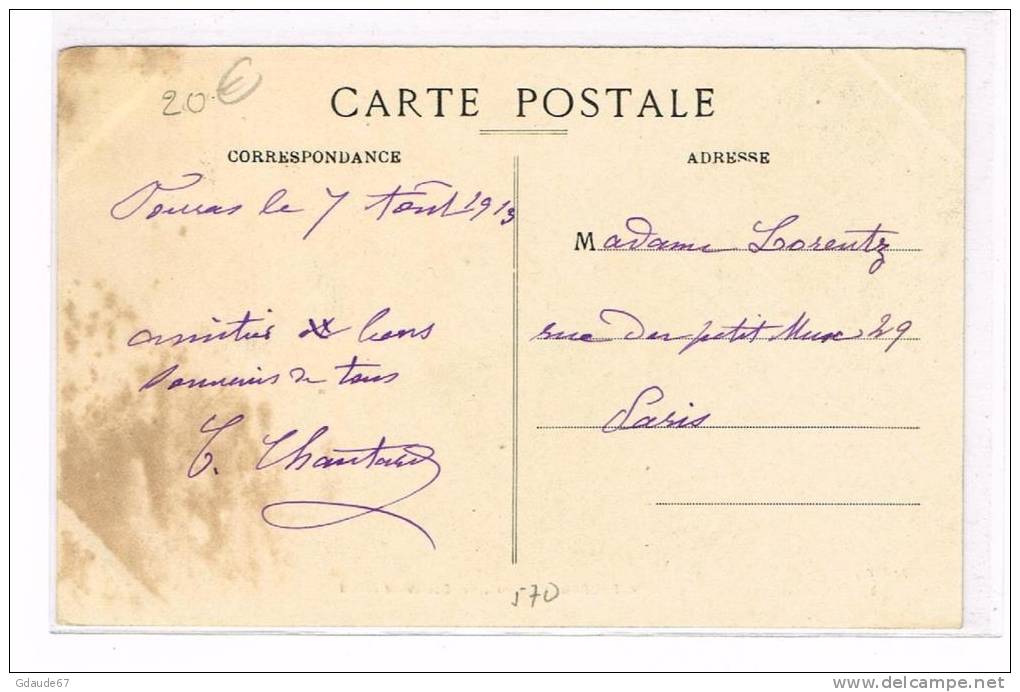 20 €
CARTE POSTALE
CORRESPONDANCE
Fouras le 7 Août 1913
amitiés et bons
souvenirs de tous
Chantard
ADRESSE
Madame Lorentz
rue du petit Musc 29
Paris
570
Gdaude67
delcampe.net